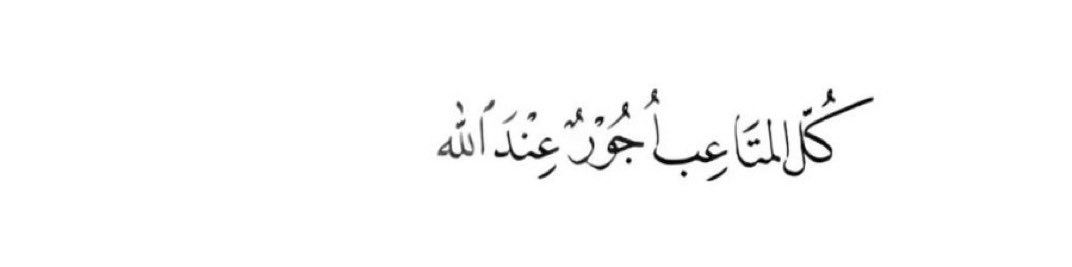 كُلّ المتَاعِب أُجُوْرٌ عِنْدَ ٱللّٰه